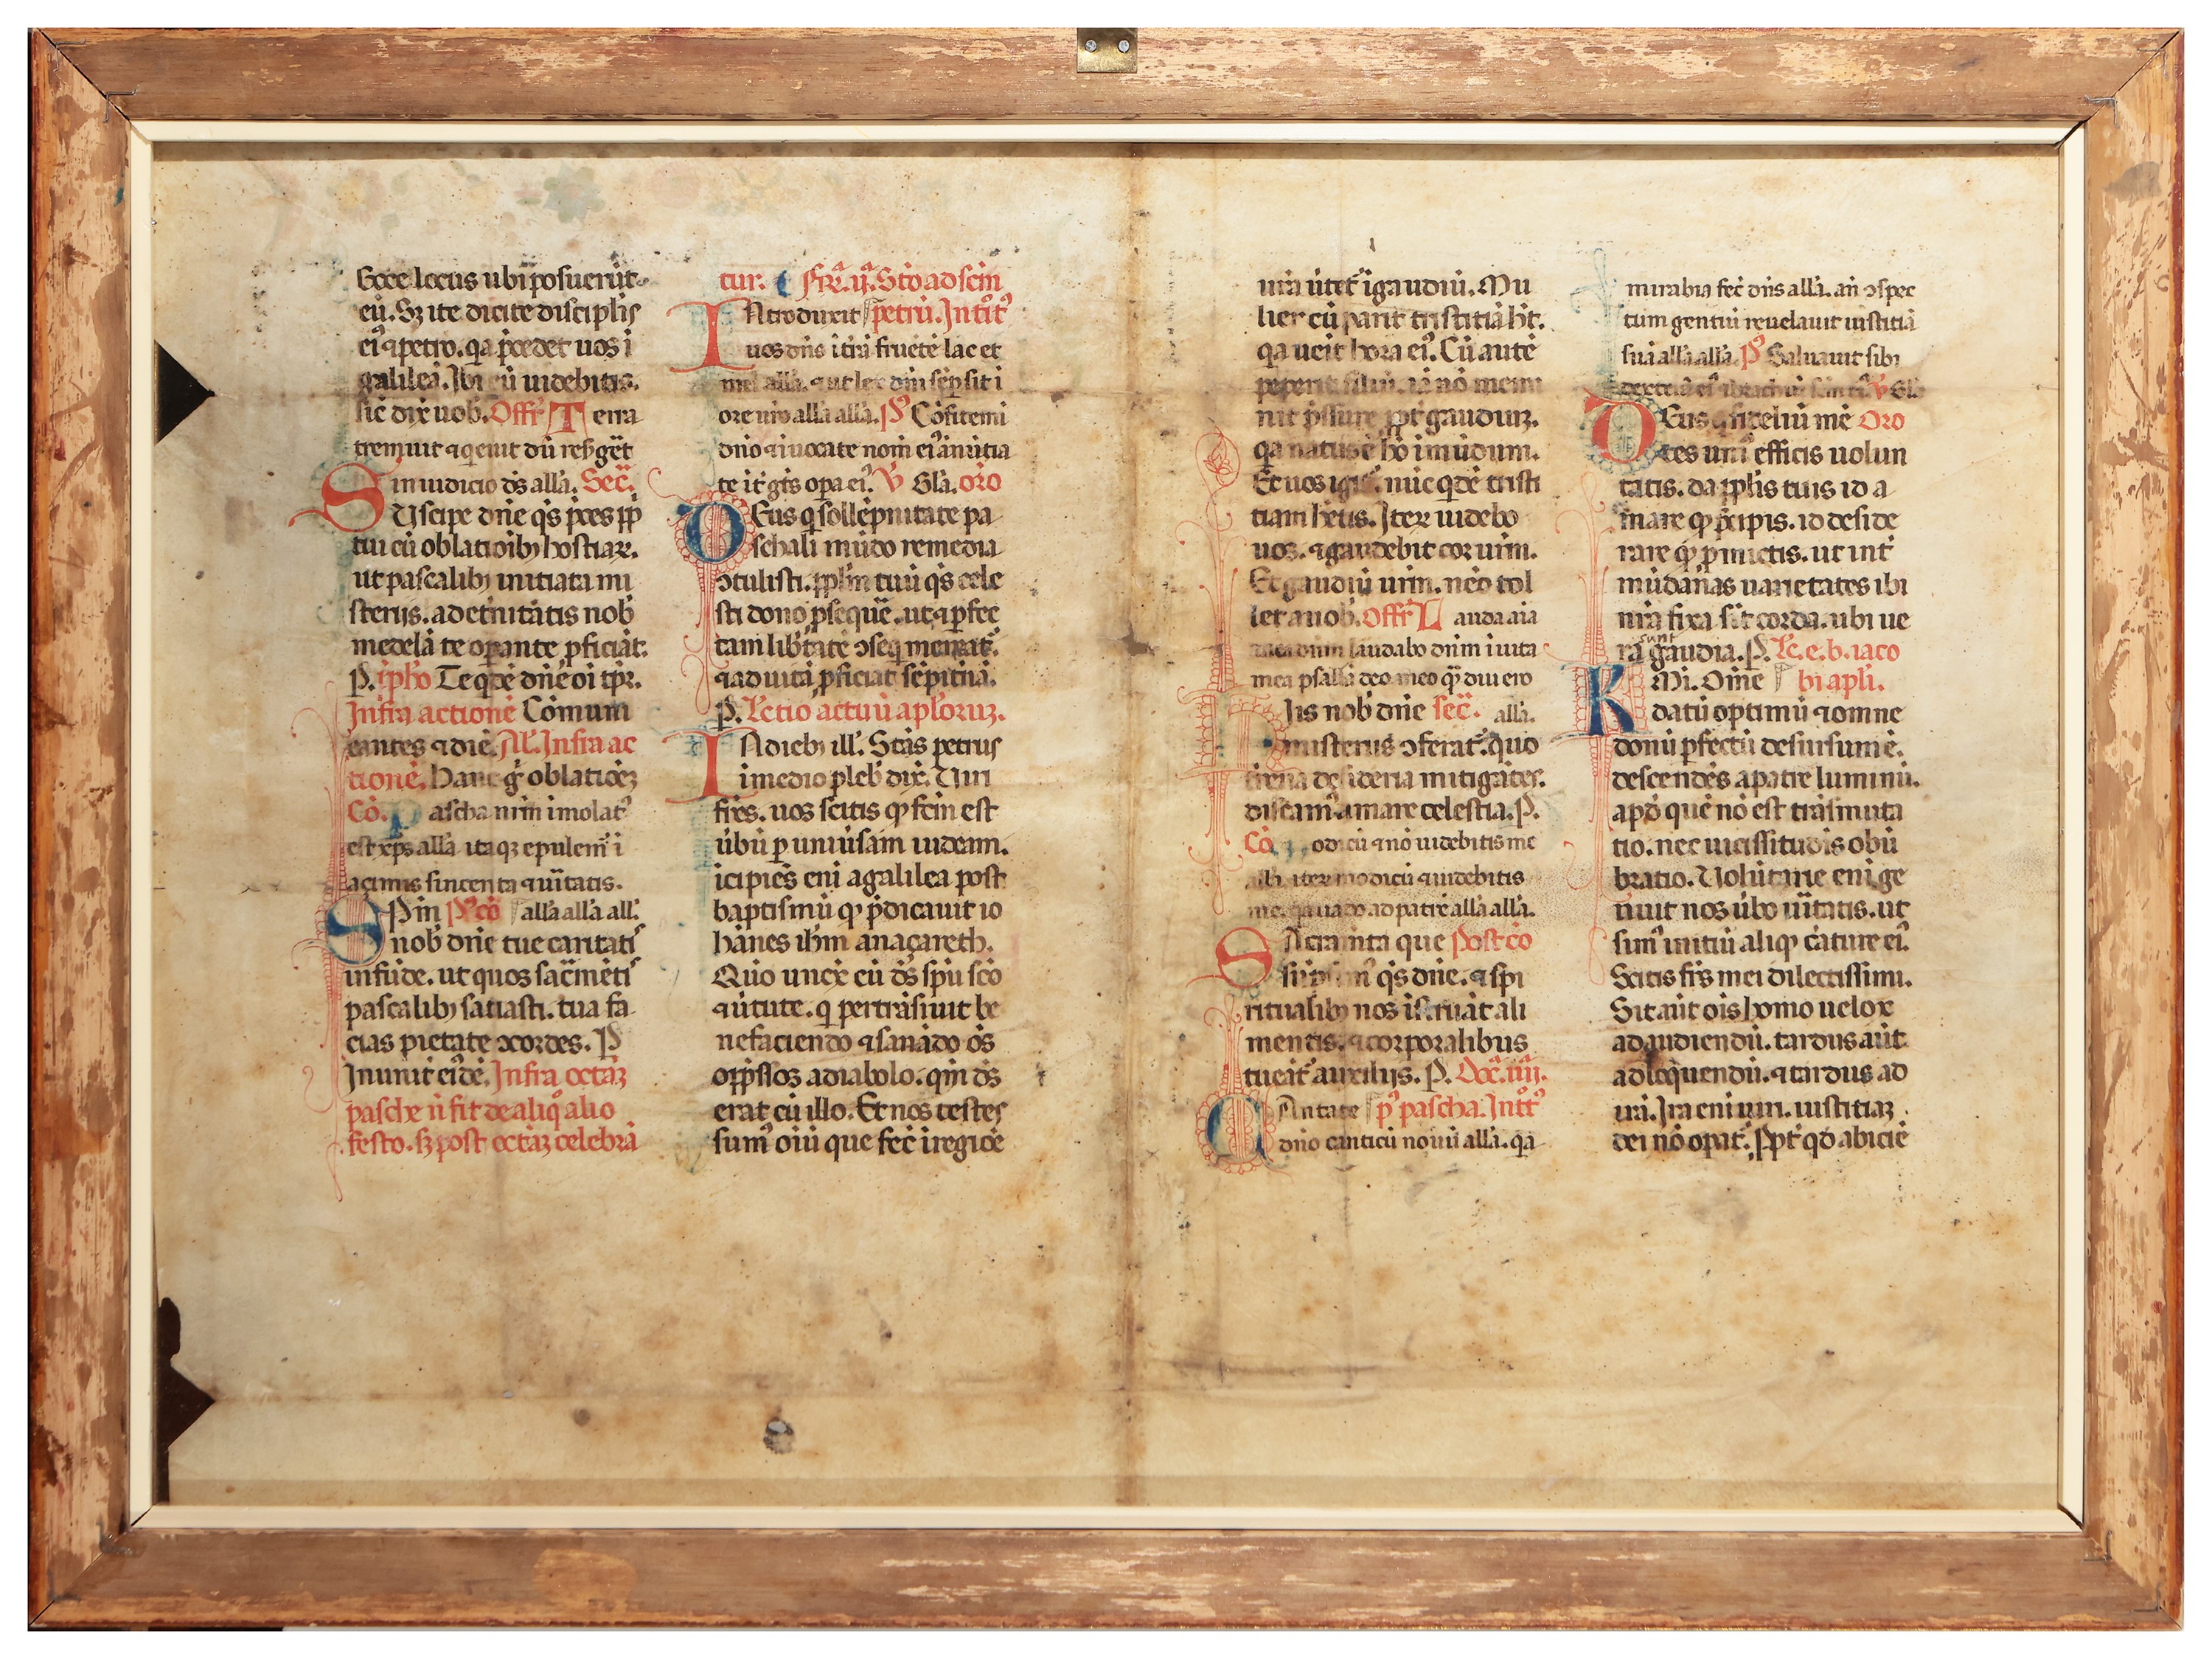 Ecce locus ubi posuerūt
eū. Sꝫ ite dicite discipĺis
eiꝰ ⁊ petro. qꝛ p̄cedet uos ī
galileā. Ibi eū uidebitis.
sic̄ dix̄ uob̄. Offr̄ Terra
tremuit ⁊ q̇euit dū res̄get̄
in iudicio ds̄ allā. Sec̄.
SUscipe dn̄e qs̄ p̄ces pp̄
tui cū oblatiōibꝫ hostiaꝝ.
ut pascalibꝫ initiata mi
sterijs. ad et̄nitātis nob̄
medelā te oꝑante ꝓficiāt.
P. īpho Te qdē dn̄e oī tp̄r.
Infra actionē Cōmuni
cantes ⁊ diē. Al̄. Infra ac
tionē. Hanc ḡ oblatiōeꝫ
Cō. Pascha nrm̄ imolatꝰ
est xp̄s allā. itaqꝫ epulem̄ ī
açimis sinceritatꝭ ⁊ ūitatis.
SPm̄ Pꝰcō allā allā all̄.
nob̄ dn̄e tue caritatꝭ
infūde. ut quos sac̄mētꝭ
pascalibꝫ satiasti. tua fa
cias pietate ɔcordes. P
In unit̄ eidē. Infra octāꝫ
pasche n̄ fit de aliqͦ alio
festo. sꝫ post octāꝫ celebrā
tur. Fr̄ꝛ. ij. Stō ad scm̄
INtroduxit petrū. Intͦtꝰ
uos dn̄s ī tr̄ā fluētē lac et
mel allā. ⁊ ut lex dn̄i sēp sit ī
ore uro allā allā. Ps̄ Cōfitemī
dn̄o ⁊ īuocate nom̄ eiꝰ ānūtia
te īt̄ gt̄s opa eiꝰ. V̄ Glā. or̄o
DEus q̇ sollēpnitate pa
schali mūdo remedia
ɔtulisti. pplm̄ tuū qs̄ cele
sti dono ꝓseque. ut ⁊ ꝑfec
tam lib̄tatē ɔseq̇ mereat̄.
⁊ ad uitā ꝓficiat sēpit̄nā.
P. Lc̄tio actuū apl̄oruꝫ.
IN diebꝫ ill̄. Stās petrus
ī medio pleb̄ dix̄. Uiri
fr̄es. uos scitis qꝫ fcm̄ est
ūbū ꝑ uniūsam iudeam.
īcipiēs eni a galilea post
baptismū qꝫ p̄dicauit io
hānes ihm̄ a naçareth.
Quo unx̄ eū ds̄ spū scō
⁊ ūtute. q̇ pertrāsiuit be
nefaciendo ⁊ sanādo os̄
opp̄ssos a diabolo. qm̄ ds̄
erat cū illo. Et nos testes
sumꝰ oiū que fec̄ ī regiōe
uia ūtet̄ ī gaudiū. Mu
lier cū parit tristitiā ht̄.
qꝛ uēit hora eiꝰ. Cū autē
pepererit filiū. iā nō memi
nit p̄ssure ppt̄ gaudiuꝫ.
qꝛ natus ē hō ī mūdum.
Et uos igit̄ nūc qdē tristi
tiam hētis. Iteꝝ uidebo
uos. ⁊ gaudebit cor urm̄.
Et gaudiū urm̄. nēo tol
let a uob̄. Offr̄ Lauda aīa
mea dnm̄ laudabo dnm̄ ī uita
mea psallā deo meo qꝫ diu ero
HIis nob̄ dn̄e sec̄. allā.
misterijs ɔferat̄. quo
terrena desideria mitigātes.
discamꝰ amare celestia. P.
Cō. Modicū ⁊ nō uidebitis me
allā. iteꝝ modicū ⁊ uidebitis
me. qꝛ uado ad patrē allā allā.
SAcram̄ta que Post cō
sūpsimꝰ qs̄ dn̄e. ⁊ spi
ritualibꝫ nos īstruāt ali
mentis. ⁊ corporalibus
tueāt̄ auxilijs. P. Doc̄. iiij.
CAntate pꝰ pascha. Intͦtꝰ
dn̄o canticū nouū allā. qꝛ
mirabia fec̄ dn̄s allā. an̄ ɔspec
tum gentiū reuelauit iustitiā
suā allā allā. Ps̄ Saluauit sibi
dextera eiꝰ ⁊ brachiū scm̄ eiꝰ. V̄ Glā
DEus q̇ fideliū mē Oro
tes uniꝰ efficis uolun
tatis. da pplīs tuis id a
mare qꝫ p̄cipis. id deside
rare qꝫ ꝓmictis. ut int̄
mūdanas uarietates ibi
nrā fixa sit corda. ubi ue
ra sunt gaudia. P. Lc̄. e. b. iaco
KMi. Omē bi apl̄i.
datū optimū ⁊ omne
donū ꝑfectū desursum ē.
descendēs a patre luminū.
apd̄ quē nō est trāsmuta
tio. nec uicissitudīs obū
bratio. Uolūtarie eni ge
nuit nos ūbo ūitatis. ut
simꝰ initiū aliqꝫ c̄ature eiꝰ.
Scitis frs̄ mei dilectissimi.
Sit aūt ois homo uelox
ad audiendū. tardus aūt
ad loquendū. ⁊ tardus ad
irā. Ira eni uiri. iustitiaꝫ
dei nō opat̄. Ppt̄ qd̄ abiciē